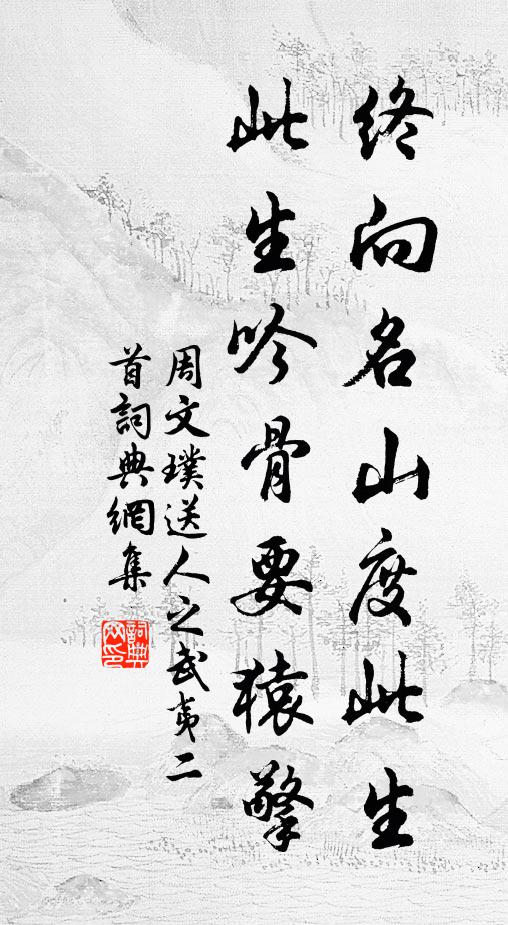 終向名山度此生
此生吟骨要猿擎
周文璞送人之武夷二
首詞典網集
詞典
网印